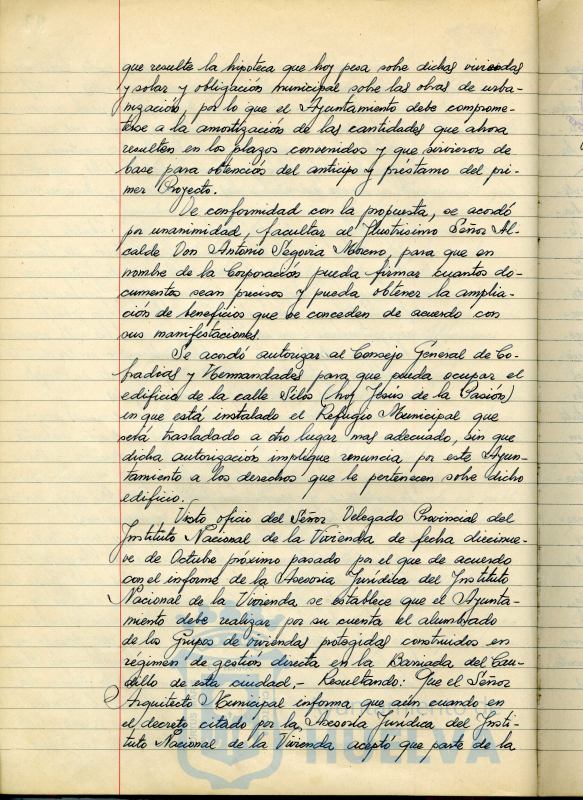 que resulte la hipoteca que hoy pesa sobre dichas viviendas
y solar y obligación municipal sobre las obras de urba-
nización, por lo que el Ayuntamiento debe comprome-
terse a la amortización de las cantidades que ahora
resulten en los plazos convenidos y que sirvieron de
base para obtención del anticipo y préstamo del pri-
mer Proyecto.
De conformidad con la propuesta, se acordó
por unanimidad, facultar al Ilustrísimo Señor Al-
calde Don Antonio Segovia Moreno, para que en
nombre de la Corporación pueda firmar cuantos do-
cumentos sean precisos y pueda obtener la amplia-
ción de beneficios que se conceden de acuerdo con
sus manifestaciones.
Se acordó autorizar al Consejo General de Co-
fradias y Hermandades para que pueda ocupar el
edificio de la calle Silos (hoy Jesús de la Pasión)
en que está instalado el Refugio Municipal que
será trasladado a otro lugar mas adecuado, sin que
dicha autorización implique renuncia por este Ayun-
tamiento a los derechos que le pertenecen sobre dicho
edificio.
Visto oficio del Señor Delegado Provincial del
Instituto Nacional de la Vivienda de fecha diecinue-
ve de Octubre próximo pasado por el que de acuerdo
con el informe de la Asesoria Jurídica del Instituto
Nacional de la Vivienda se establece que el Ayunta-
miento debe realizar por su cuenta el alumbrado
de los Grupos de viviendas protegidas construidos en
régimen de gestión directa en la Barriada del Cau-
dillo de esta ciudad.- Resultando: Que el Señor
Arquitecto Municipal informa que aún cuando en
el decreto citado por la Asesoria Jurídica del Insti-
tuto Nacional de la Vivienda aceptó que parte de la
HUELVA